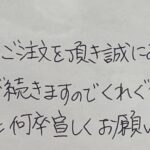 ご注文を頂き誠に
続きますのでくれぐ
何卒宜しくお願い